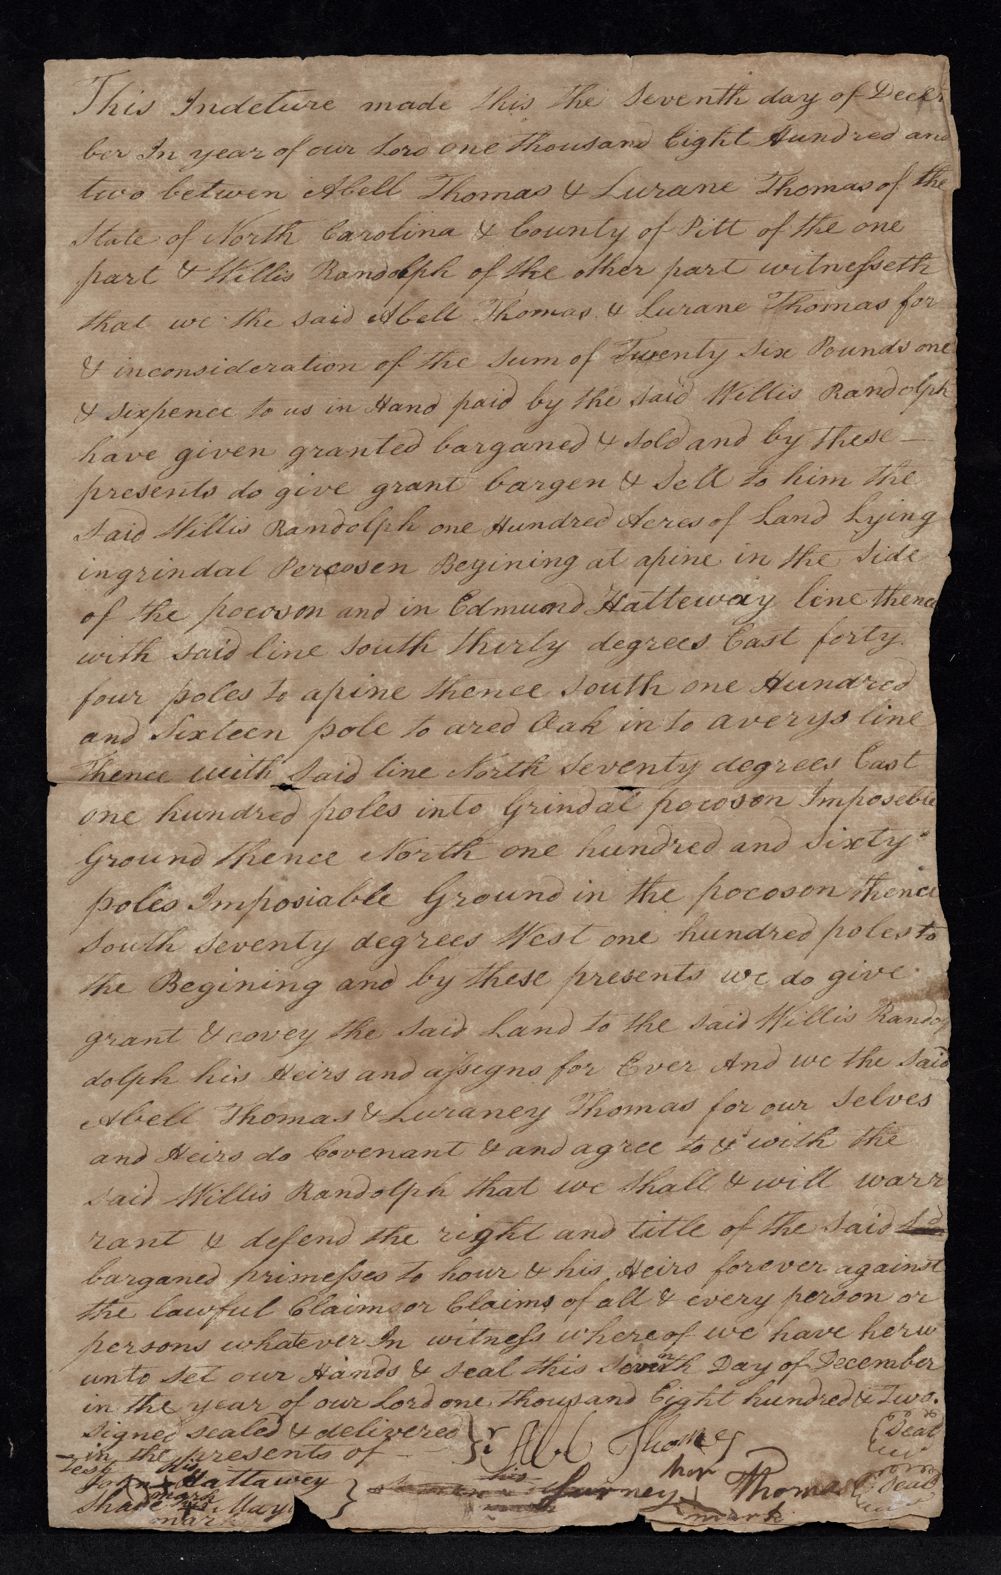 This Indeture made this the Seventh day of Decem
ber In year of our Lord one thousand Eight Hundred and
two betwen Abell Thomas & Lurane Thomas of the
State of North Carolina & County of Pitt of the one
part & Willis Randolph of the other part witnesseth
that we the said Abell Thomas & Lurane Thomas for
& inconsideration of the Sum of Twenty Six Pounds one
& sixpence to us in Hand paid by the said Willis Randolph
have given granted barganed & sold and by these
presents do give grant bargen & Sell to him the
Said Willis Randolph one Hundred Acres of Land Lying
in grindal Percosen Begining at apine in the Side
of the pocoson and in Edmund Hatteway line thence
with said line South thirty degrees East forty
four poles to apine thence South one Hundred
and Sixteen pole to ared Oak in to averys line
Thence with Said line North Seventy degrees East
one hundred poles into Grindal pocoson Imposeble
Ground thence North one hundred and Sixty
poles Imposiable Ground in the pocoson thence
South Seventy degrees West one hundred poles to
the Begining and by these presents we do give
grant & covey the Said Land to the said Willis Rando
dolph his Heirs and assigns for Ever And we the Said
Abell Thomas & Luraney Thomas for our Selves
and Heirs do Covenant & and agree to & with the
said Willis Randolph that we Shall & will warr
rant & defend the right and title of the Said
barganed primesses to hour & his Heirs forever against
the lawful Claims or Claims of all & every person or
persons whatever In witness whereof we have herw
unto Set our Hands & Seal this Seventh Day of December
in the year of our Lord one thousand Eight hundred & Two.
Signed sealed & delivered Abel Thomas (Seal)
in the presents of
Test his her
John X Hattawey Lurney Thomas (Seal)
mark mark
Shade his Mayo
mark